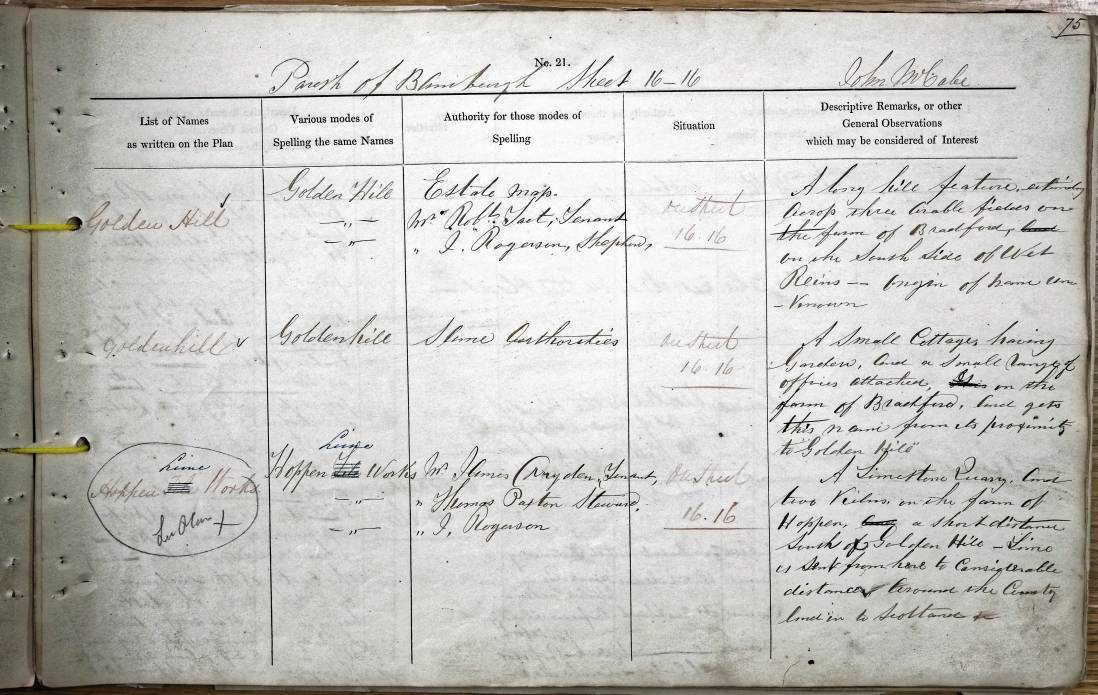 75
No. 21.
Parish of Bamburgh Sheet 16-16
John McCabe
List of Names
as written on the Plan
Various modes of
Spelling the same Names
Authority for those modes of
Spelling
Situation
Descriptive Remarks, or other
General Observations
which may be considered of Interest
Golden Hill
Golden Hill
-„-
-„-
Estate map.
Mr. Robt. Tait, Tenant
„ J. Rogerson, Shepherd,
On Sheet
16.16
A long hill feature, extending
across three arable fields on
the farm of Bradford,
on the South Side of Wet
Reins -- Origin of name un
-known
Goldenhill
Goldenhill
Same Authorities
On Sheet
16.16
A Small Cottage, having
Garden, and a Small range of
offices attached, on the
farm of Bradford. And gets
this name from its proximity
to Golden Hill
Lime
Hoppen Works
Lime
Hoppen Works
-„-
-„-
Mr. James Tenant,
„ Thomas Paxton Steward,
„ J. Rogerson
On Sheet
16.16
A Limestone Quarry, and
two Kilns, on the farm of
Hoppen, a short distance
South of Golden Hill - Lime
is sent from here to Considerable
distances around the County
and in to Scotland